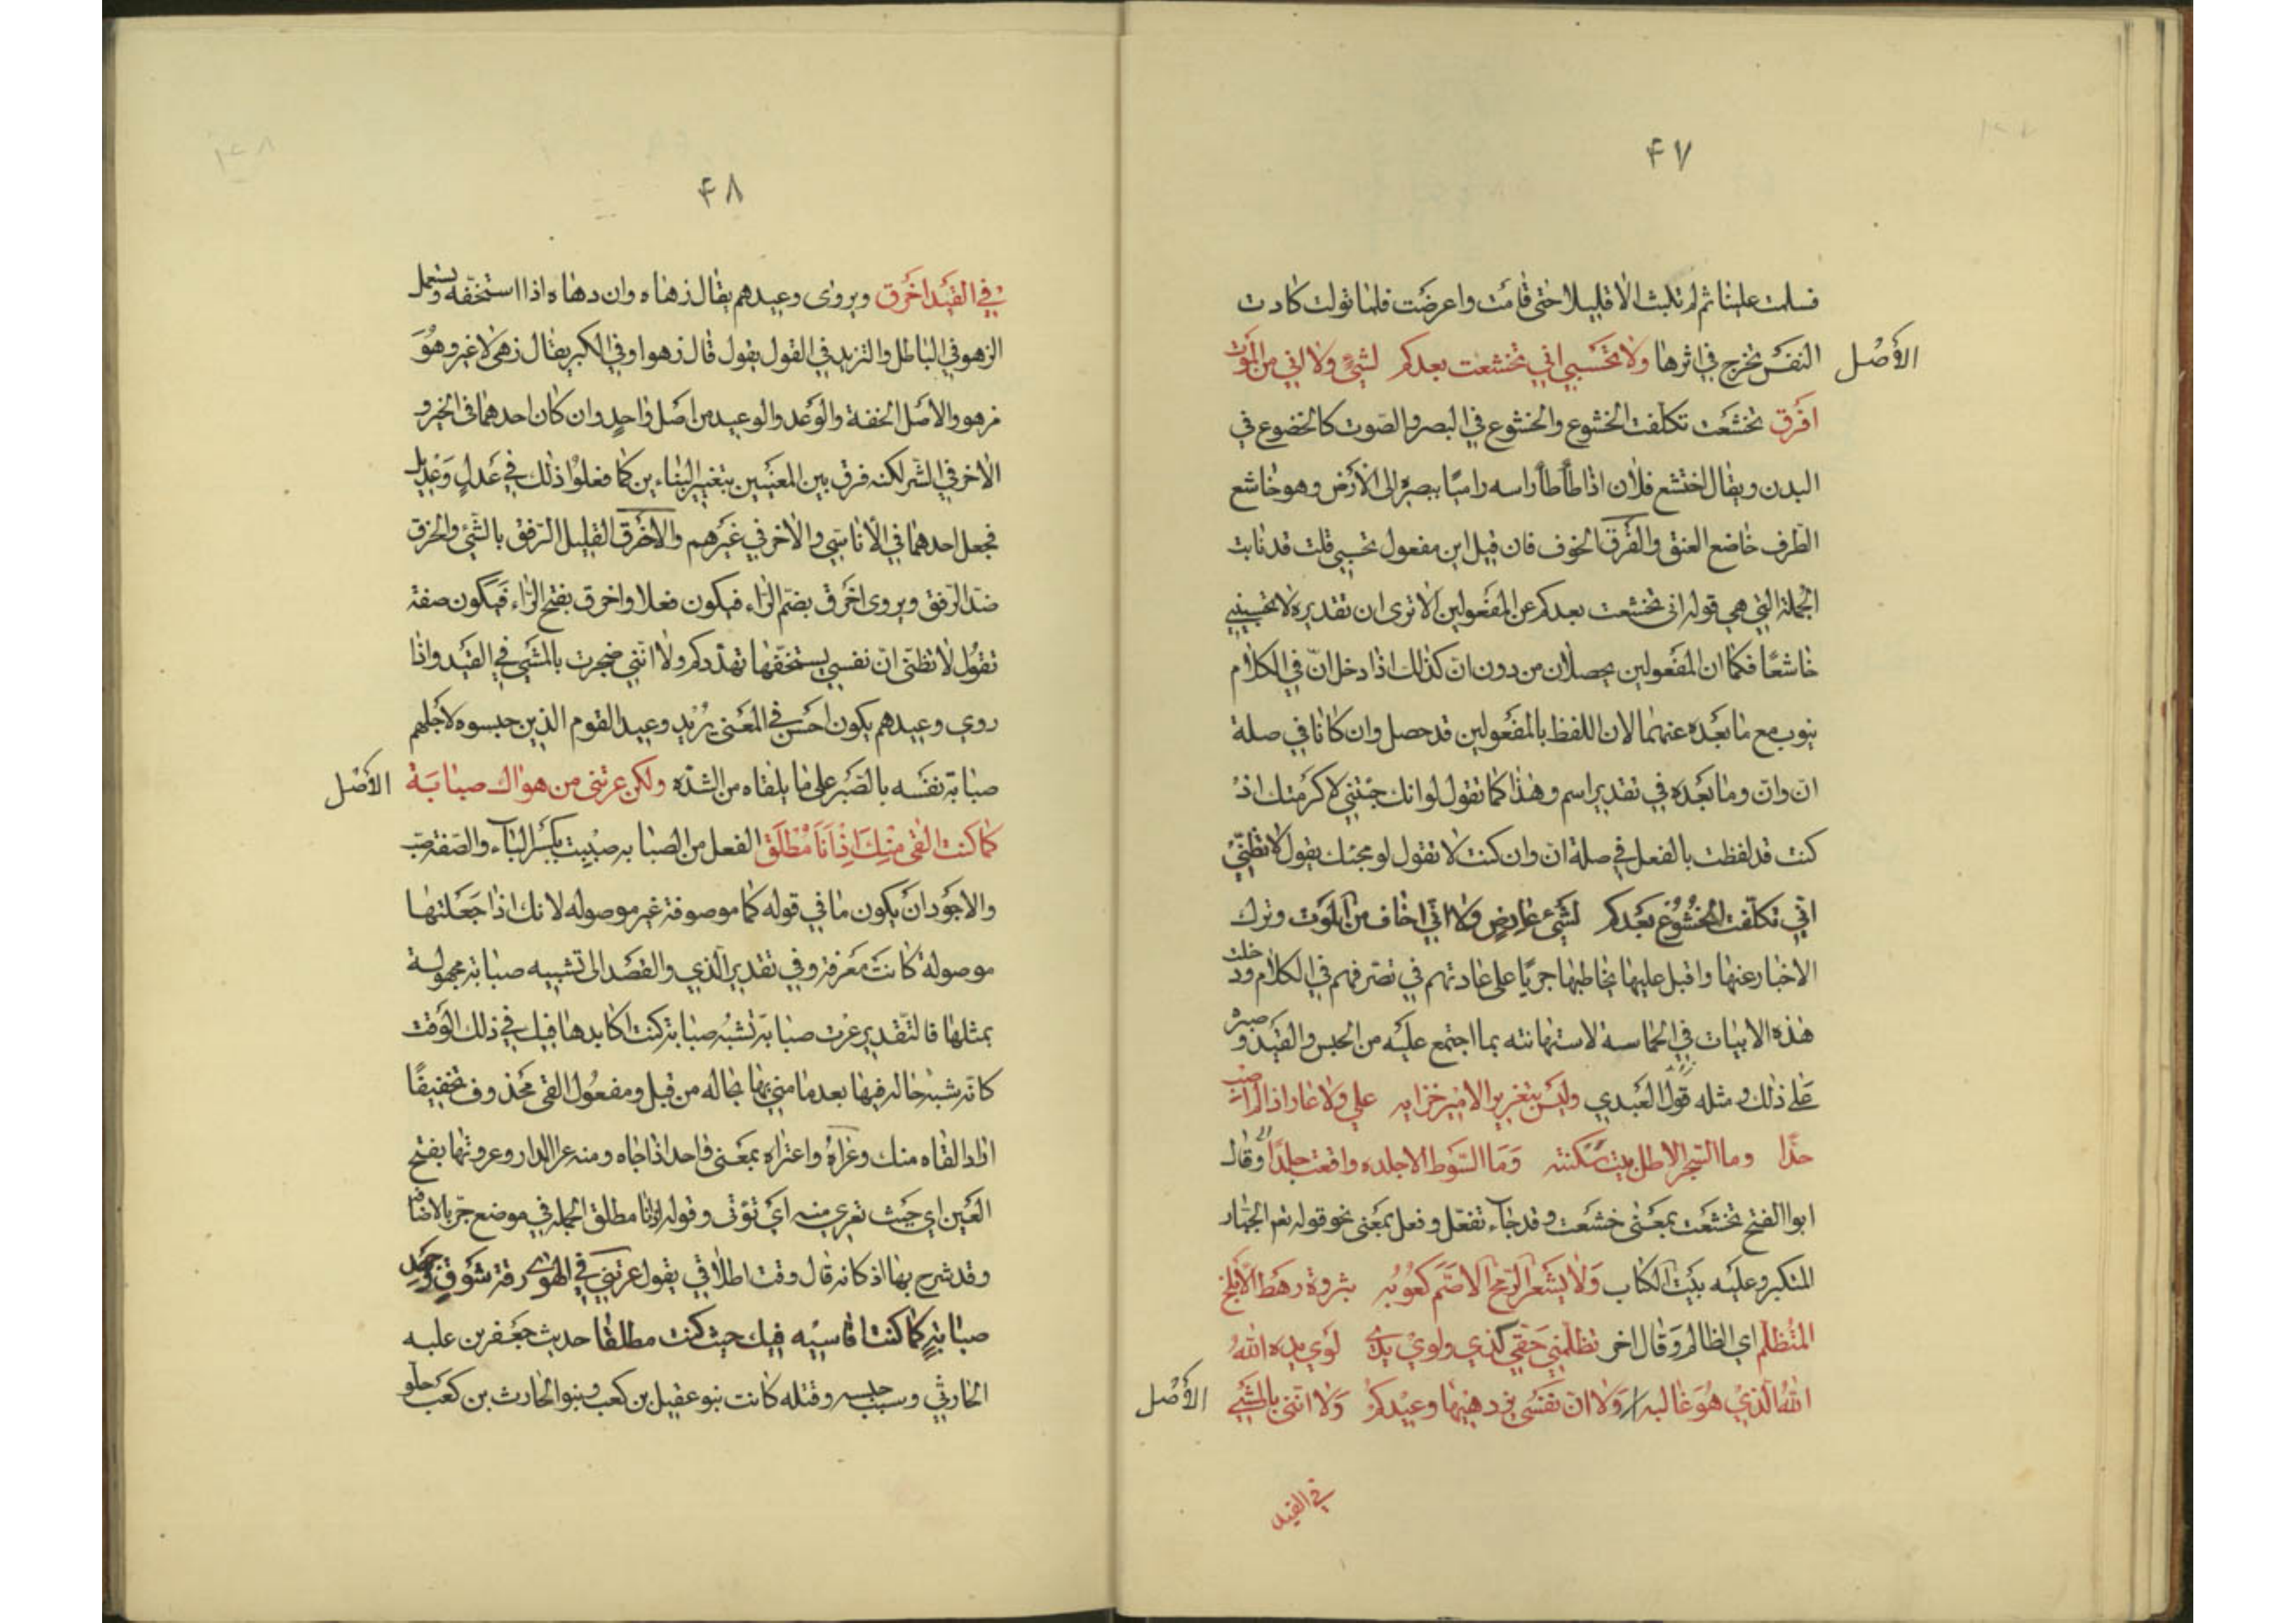 ۴۷
فسلمت علینا ثم لم تلبث الا قلیلا حتی قامت واعرضت فلما تولت کادت
الأصل
النفس تخرج فی اثرها ولا تحسبی انی تخشعت بعدکم لشیءٍ ولا انی من الموت
افرق تخشعت تکلفت الخشوع والخشوع فی البصر والصوت کالخضوع فی
البدن ویقال اختشع فلان اذا طأطأ راسه رامیًا ببصره الی الأرض وهو خاشع
الطرف خاضع العنق والفرق الخوف فان قیل این مفعول تحسبی قلت قد نابت
الجملة التی هی قوله انی تخشعت بعدکم عن المفعولین الا تری ان تقدیره لا تحسبینی
خاشعًا فکما ان المفعولین یحصلان من دون انّ کذلک اذا دخل انّ فی الکلام
ینوب مع ما بعده عنهما لان اللفظ بالمفعولین قد حصل وان کانا فی صلة
ان وانّ وما بعده فی تقدیر اسم وهذا کما تقول لو انک جئتنی لاکرمتک اذ
کنت قد لفظت بالفعل فی صلة انّ وان کنت لا تقول لو مجیئک یقول لا تظنّیْ
انی تکلّفت الخشوع بعدکم لشیء عارض ولا انّی اخاف من الموت وترک
الاخبار عنها واقبل علیها یخاطبها جریًا علی عادتهم فی تصرفهم فی الکلام ودخلت
هذه الابیات فی الحماسة لاستهانته بما اجتمع علیه من الحبس والقید وصبره
علی ذلک ومثله قول العبدی ولیس بتغریر الامیر خزایه علی ولا عار اذا لم اصب
حدّا وما السجن الا ظل بیت سکنته وما السوط الا جلده واقعت جلدًا وقال
ابو الفتح تخشعت بمعنی خشعت وقد جاء تفعّل وفعل بمعنی نحو قوله نعم الجبّار
المتکبر وعلیه بیت الکتاب ولا یشعر الرّمح الاصمّ کعوبُه بثروة رهط الابلخ
المتظلّم ای الظالم وقال اخر تظلّمنی حقی کذی ولوی یدی لوی یده اللهُ
اللهُ الّذیْ هُوَ غالبه / ولا ان نفسی یزدهیها وعیدکم ولا اننی بالمشیِ
الأصل
فی القید
۴۸
فی القید اخرق ویروی وعیدهم یقال زهاه وازدهاه اذا استخفّه ویستعمل
الزهو فی الباطل والتزید فی القول یقول قال زهوا وفی الکبر یقال زهی لا غیر وهوَ
مزهو والاصل الخفة والوعد والوعید من اصل واحدٍ وان کان احدهما فی الخیر و
الاخر فی الشّر لکنه فرق بین المعنیین بتغییر البنائین کما فعلوا ذلک فی عدلٍ وعدیل
فجعل احدهما فی الأناسیّ والاخر فی غیرهم والاخرق القلیل الرّفق بالشّیء والخرق
ضد الرّفق ویروی اخرق بضمّ الرّاء فیکون فعلا واخرق بفتح الرّاء فیکون صفة
تقول لا تظنّی انّ نفسی یستخفّها تهدّدکم ولا اننی ضجرت بالمشی فی القید واذا
روی وعیدهم یکون احسن فی المعنی یُرید وعید القوم الذین حبسوه لاجلهم
صبابة نفسه بالصبر علی ما یلقاه من الشدّه ولکن عرتنی من هواك صبابة
الأصل
کما کنت القی منکِ اذ انا مطلق الفعل من الصبابه صببت بکسر الباء والصفة صبّ
والاجود ان یکون ما فی قوله کما موصوفة غیر موصوله لانک اذا جعلتها
موصولة کانت معرفة وفی تقدیر الّذی والقصد الی تشبیه صبابة مجهولة
بمثلها فالتّقدیر عرت صبابة تشبهُ صبابة کنت اکابدها فیک فی ذلک الوقت
کانّه شبه حاله فیها بعد ما منی بها بحاله من قبل ومفعول القی محذوف تخفیفًا
اراد القاه منک وعراهُ واعتراه بمعنی واحد اذا جاءه ومنه عرا الدار وعروتها بفتح
العین ای حیث تعری منه ای تؤتی وقوله اذ انا مطلق الجمله فی موضع جرّ بالاضافة
وقد شرح بها اذ کانه قال وقت اطلاقی یقول عرتنی فی الهوی رقة شوقٍ وجهد
صبابةٍ کما کنت اقاسیه فیک حیث کنت مطلقا حدیث جعفر بن علبه
الحارثی وسبب حبسه وقتله کانت بنو عقیل بن کعب وبنو الحارث بن کعب حلو